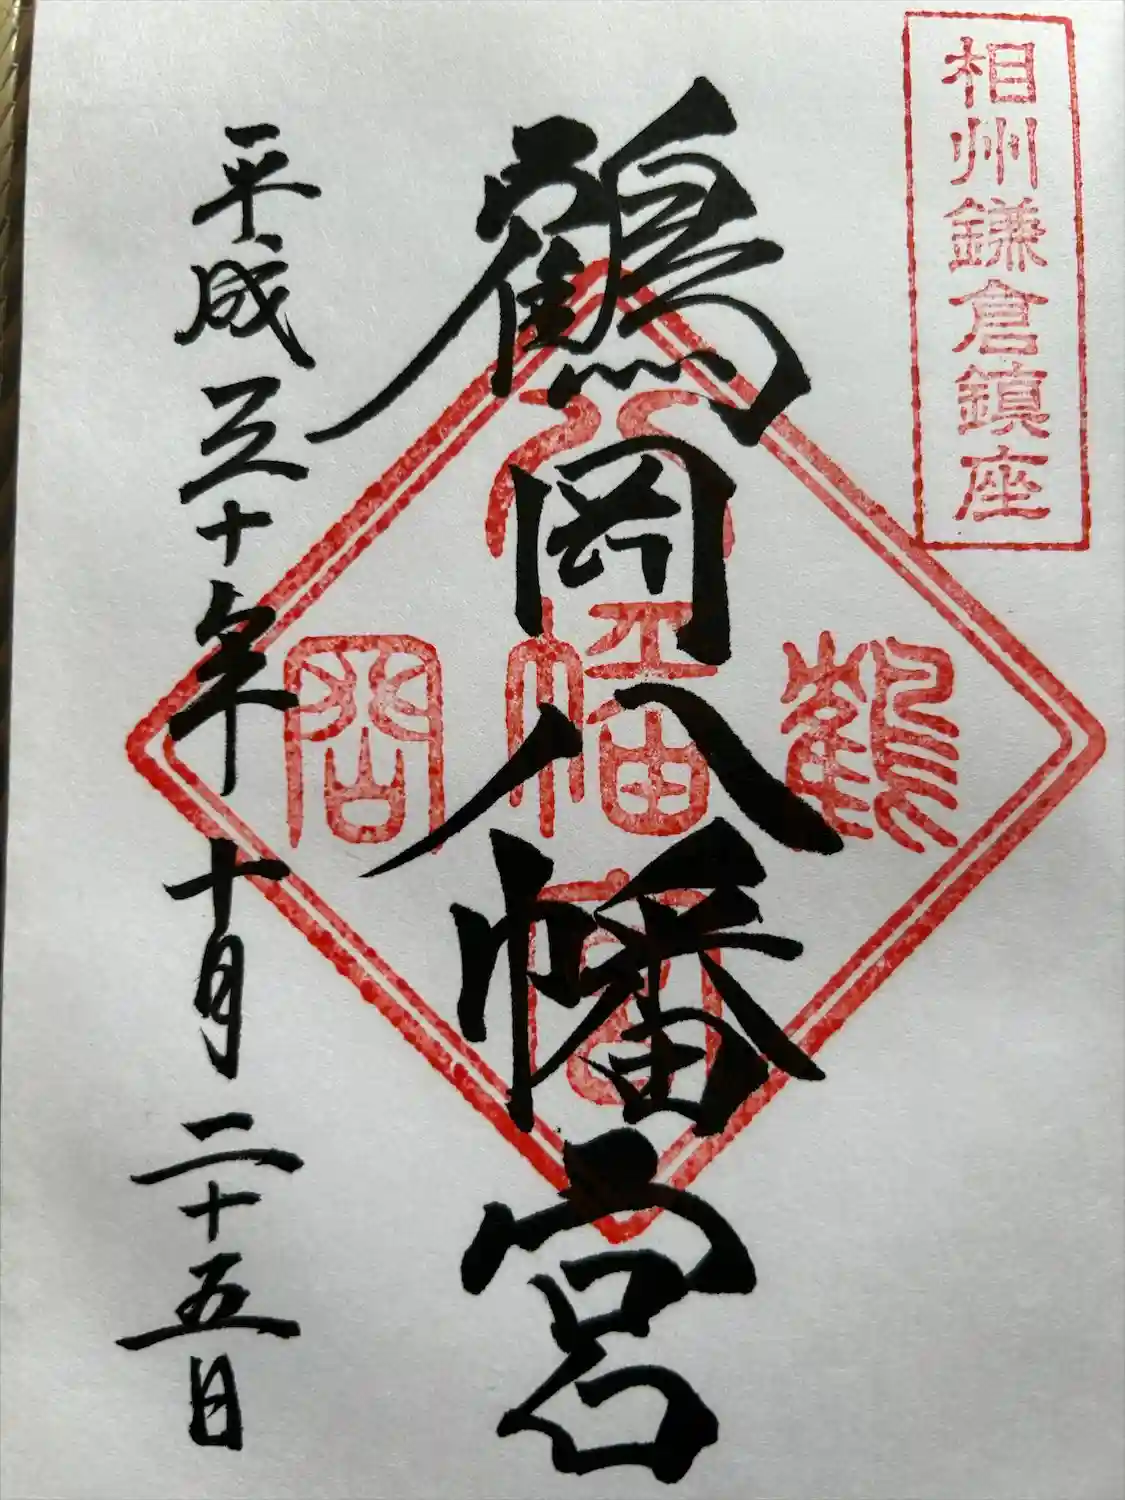 相州鎌倉鎮座
鶴岡八幡宮
鶴
八幡宮
岡
平成三十年十月二十五日